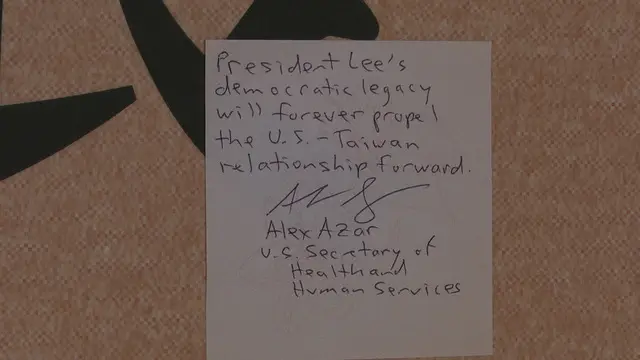 President Lee's
democratic legacy
will forever propel
the U.S. - Taiwan
relationship forward.
Alex Azar
U.S. Secretary of
Health and
Human Services